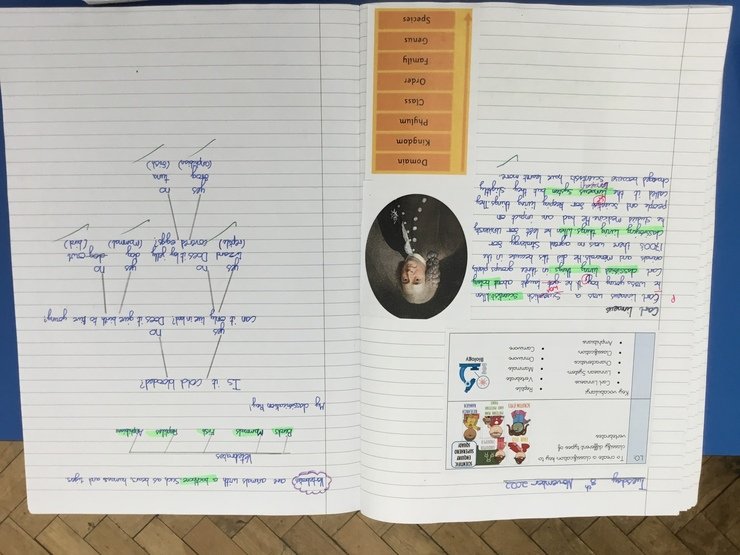 Tuesday 8th November 2022
LO:
To create a classification key to
classify different types of
vertebrates
SCIENTIFIC
ENQUIRY
Key vocabulary:
Carl Linnaeus
Linnaean System
Characteristics
Classification
Amphibians
Reptile
Vertebrate
Mammals
Omnivore
Carnivore
Biology
Carl Linnaeus
Carl Linnaeus was a Sweedish Scientist. When
he was young boy he got taught about biology
Carl classified living things in there groups, plants,
animals and minerals. He did this because in the
1700s there was no agreed strategy for
classifying living things. When he left for University
he studied medicine. He had an impact on
people and Scientists for keeping living things. They
called it the Linnaeus System but they slightly
changed because Scientists have learnt more.
Domain
Kingdom
Phylum
Class
Order
Family
Genus
Species
Vertebrates are animals with a backbone such as bears, humans and tigers
Vertebrates
Birds Mammals Fish Reptiles Amphibians
My classification Key!
Is it cold blooded?
yes no
can it only live in land? Does it give birth to live young?
yes no yes no
lizard Does it lay jelly dog
(reptile) covered eggs? (mammal) (bird)
yes no
frog tuna
(amphibian) (fish)